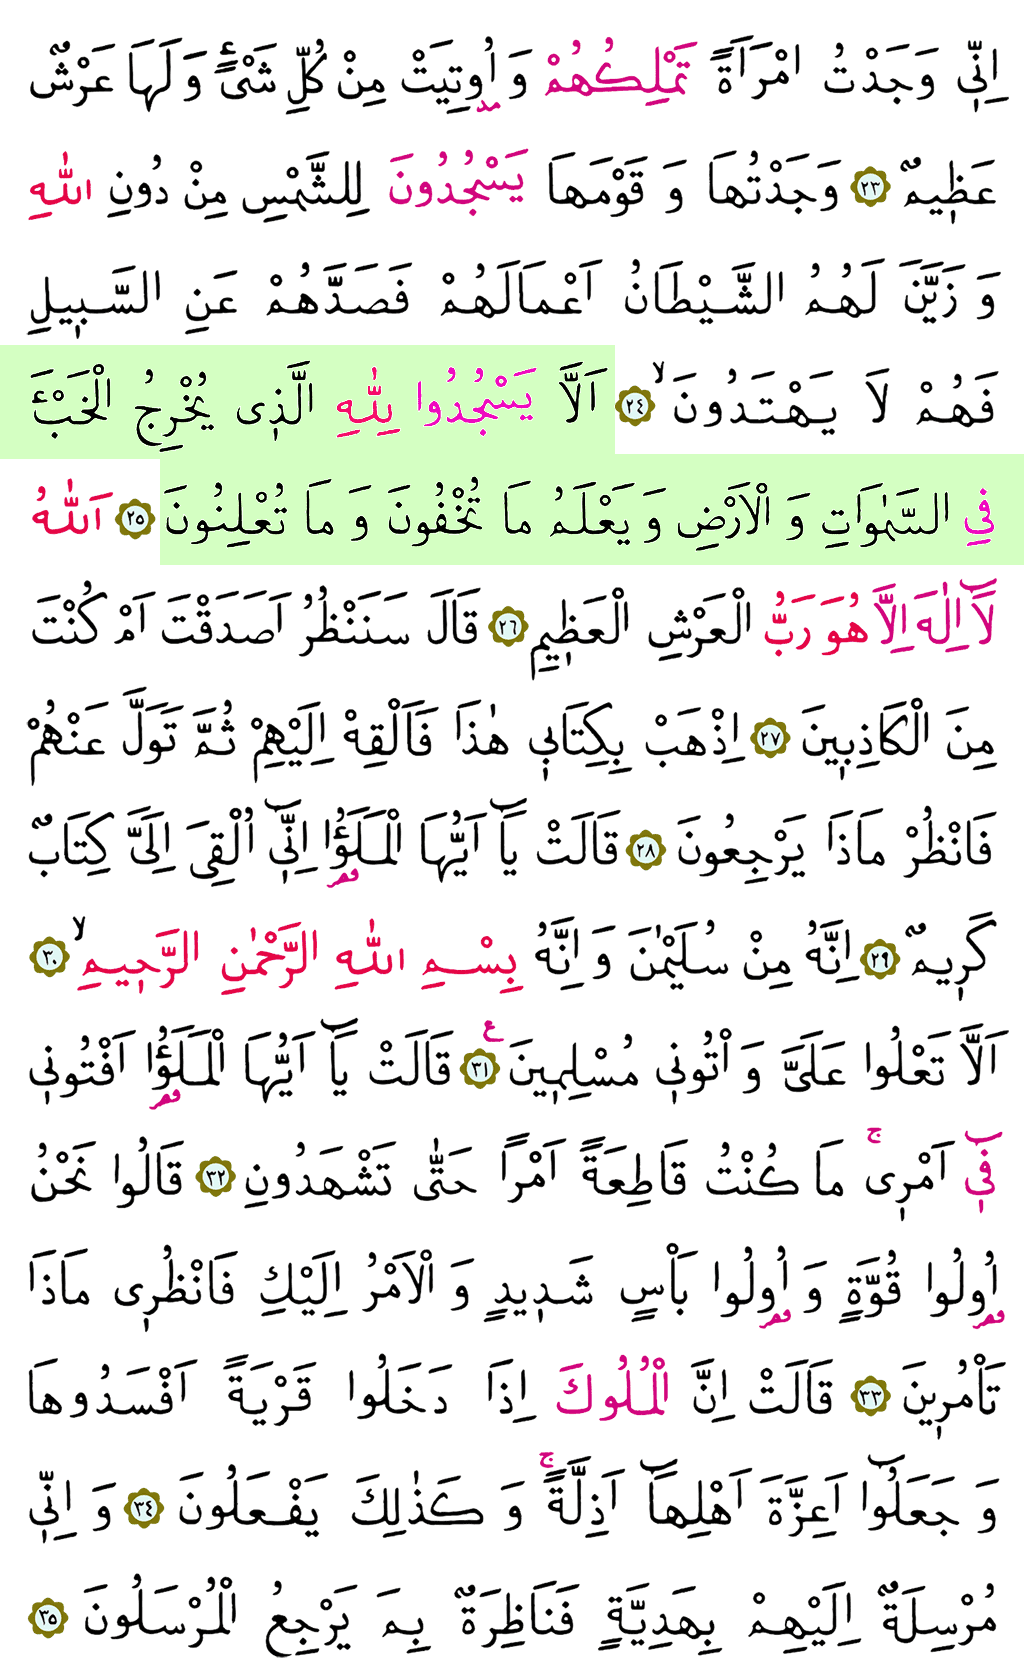 اِنّ۪ي وَجَدْتُ امْرَاَةً تَمْلِكُهُمْ وَ اُو۫تِيَتْ مِنْ كُلِّ شَىْءٍ وَ لَهَا عَرْشٌ
عَظ۪يمٌ ﴿٢٣﴾ وَجَدْتُهَا وَ قَوْمَهَا يَسْجُدُونَ لِلشَّمْسِ مِنْ دُونِ اللّٰهِ
وَ زَيَّنَ لَهُمُ الشَّيْطَانُ اَعْمَالَهُمْ فَصَدَّهُمْ عَنِ السَّب۪يلِ
فَهُمْ لَا يَهْتَدُونَۙ ﴿٢٤﴾ اَلَّا يَسْجُدُوا لِلّٰهِ الَّذ۪ى يُخْرِجُ الْخَبْءَ
فِي السَّمٰوَاتِ وَ الْاَرْضِ وَ يَعْلَمُ مَا تُخْفُونَ وَ مَا تُعْلِنُونَ ﴿٢٥﴾ اَللّٰهُ
لَٓا اِلٰهَ اِلَّا هُوَ رَبُّ الْعَرْشِ الْعَظ۪يمِ ﴿٢٦﴾ قَالَ سَنَنْظُرُ اَصَدَقْتَ اَمْ كُنْتَ
مِنَ الْكَاذِب۪ينَ ﴿٢٧﴾ اِذْهَبْ بِكِتَاب۪ي هٰذَا فَاَلْقِهْ اِلَيْهِمْ ثُمَّ تَوَلَّ عَنْهُمْ
فَانْظُرْ مَاذَا يَرْجِعُونَ ﴿٢٨﴾ قَالَتْ يَٓا اَيُّهَا الْمَلَؤُ۬ا اِنّ۪ٓي اُلْقِىَ اِلَىَّ كِتَابٌ
كَر۪يمٌ ﴿٢٩﴾ اِنَّهُ مِنْ سُلَيْمٰنَ وَ اِنَّهُ بِسْمِ اللّٰهِ الرَّحْمٰنِ الرَّح۪يمِۙ ﴿٣٠﴾
اَلَّا تَعْلُوا عَلَىَّ وَ اْتُون۪ي مُسْلِم۪ينَ ﴿٣١﴾ ع قَالَتْ يَٓا اَيُّهَا الْمَلَؤُ۬ا اَفْتُون۪ي
ف۪ٓي اَمْر۪ىۚ مَا كُنْتُ قَاطِعَةً اَمْرًا حَتّٰى تَشْهَدُونِ ﴿٣٢﴾ قَالُوا نَحْنُ
اُو۬لُوا قُوَّةٍ وَ اُو۬لُوا بَاْسٍ شَد۪يدٍ وَ الْاَمْرُ اِلَيْكِ فَانْظُر۪ى مَاذَا
تَاْمُر۪ينَ ﴿٣٣﴾ قَالَتْ اِنَّ الْمُلُوكَ اِذَا دَخَلُوا قَرْيَةً اَفْسَدُوهَا
وَ جَعَلُٓوا اَعِزَّةَ اَهْلِهَٓا اَذِلَّةًۚ وَ كَذٰلِكَ يَفْعَلُونَ ﴿٣٤﴾ وَ اِنّ۪ي
مُرْسِلَةٌ اِلَيْهِمْ بِهَدِيَّةٍ فَنَاظِرَةٌ بِمَ يَرْجِعُ الْمُرْسَلُونَ ﴿٣٥﴾